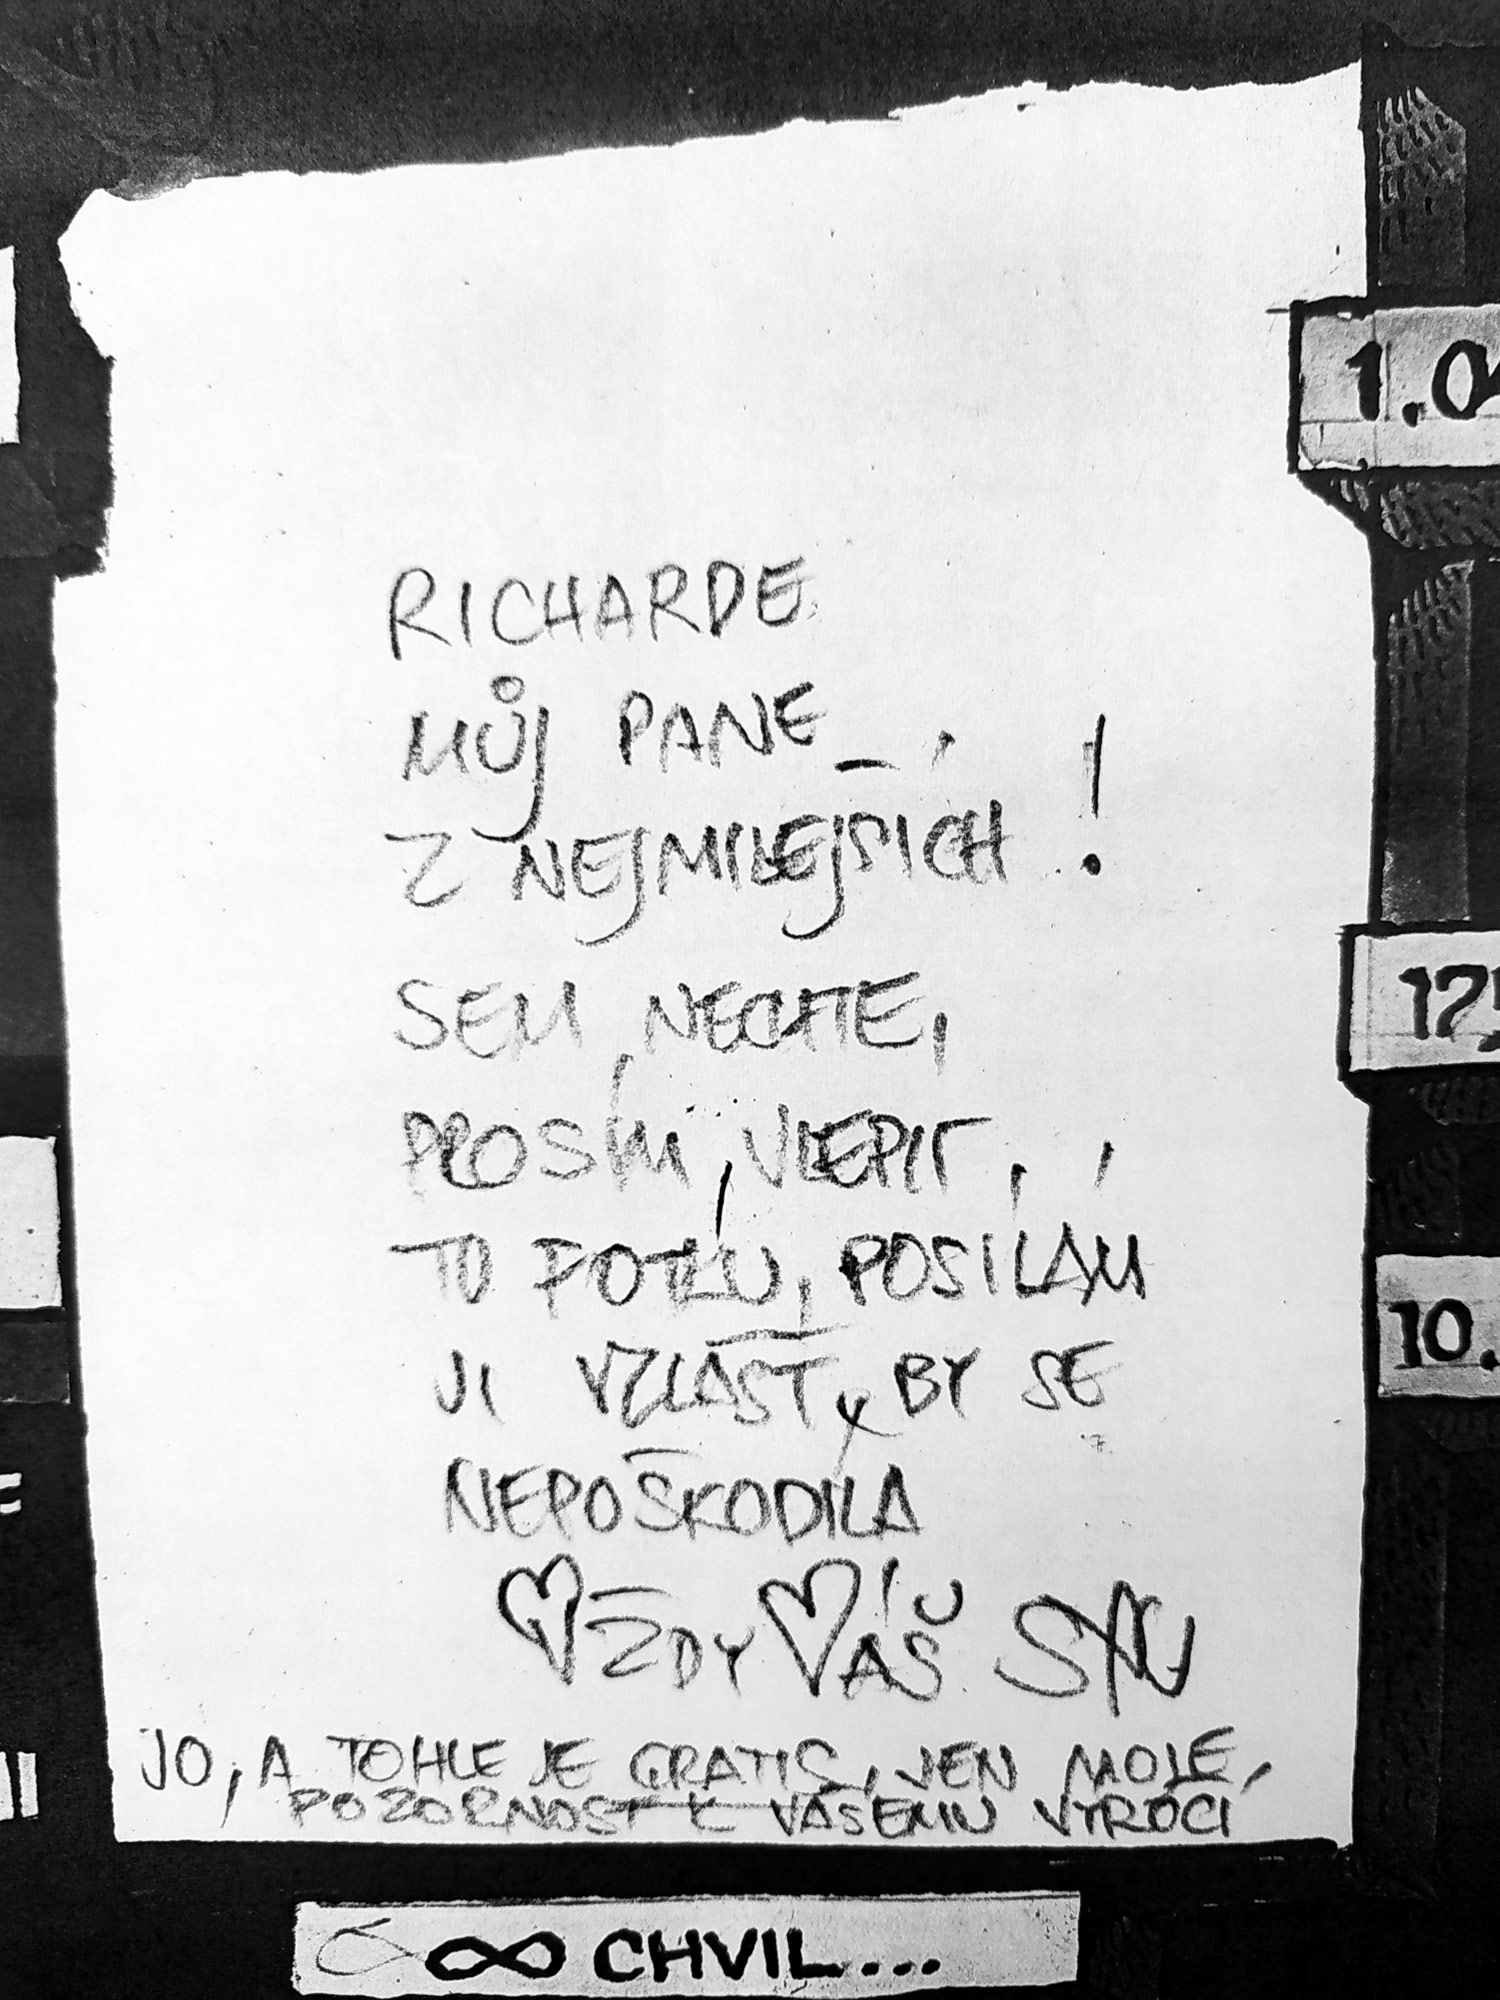 RICHARDE
MŮJ PANE _
Z NEJMILEJŠÍCH !
SEM NECHTE,
PROSÍM, VLEPIT,
TU FOTKU, POSÍLÁM
JI VZLÁŠT, BY SE
NEPOŠKODILA
VŽDY VÁŠ
JO, A TOHLE JE GRATIS, JEN MOJE
POZORNOST K VAŠEMU VÝROČÍ
∞ CHVIL...
1.0
10.